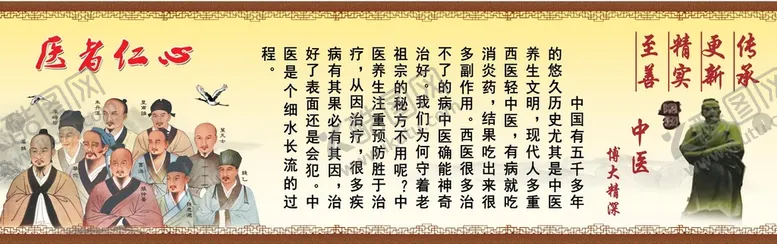 医者仁心
中国有五千多年
的悠久历史尤其是中医
养生文明，现代人多重
西医轻中医，有病就吃
消炎药，结果吃出来很
多副作用。西医很多治
不了的病中医确能神奇
治好。我们为何守着老
祖宗的秘方不用呢？中
医养生注重预防胜于治
疗，从因治疗，很多疾
病有其果必有其因，治
好了表面还是会犯。中
医是个细水长流的过
程。
传承
更新
精实
至善
中医
博大精深